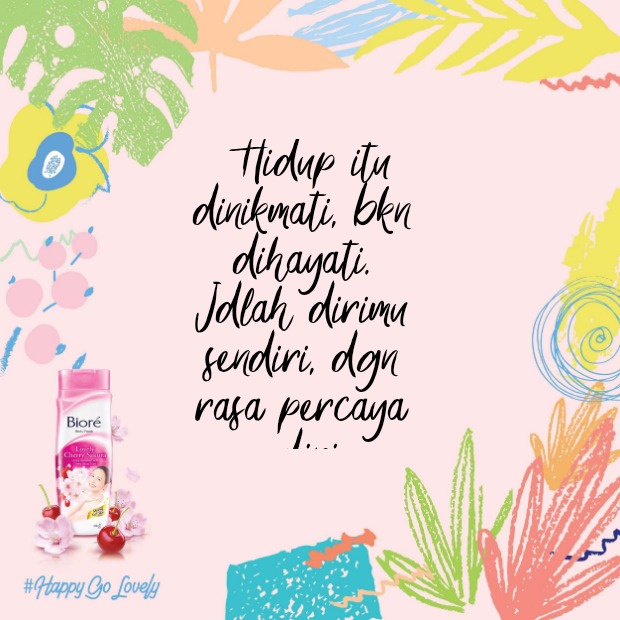 Hidup itu
dinikmati, bkn
dihayati.
Jdlah dirimu
sendiri, dgn
rasa percaya
Bioré
Body Foam
Lovely
Cherry Sakura
#Happy Go Lovely